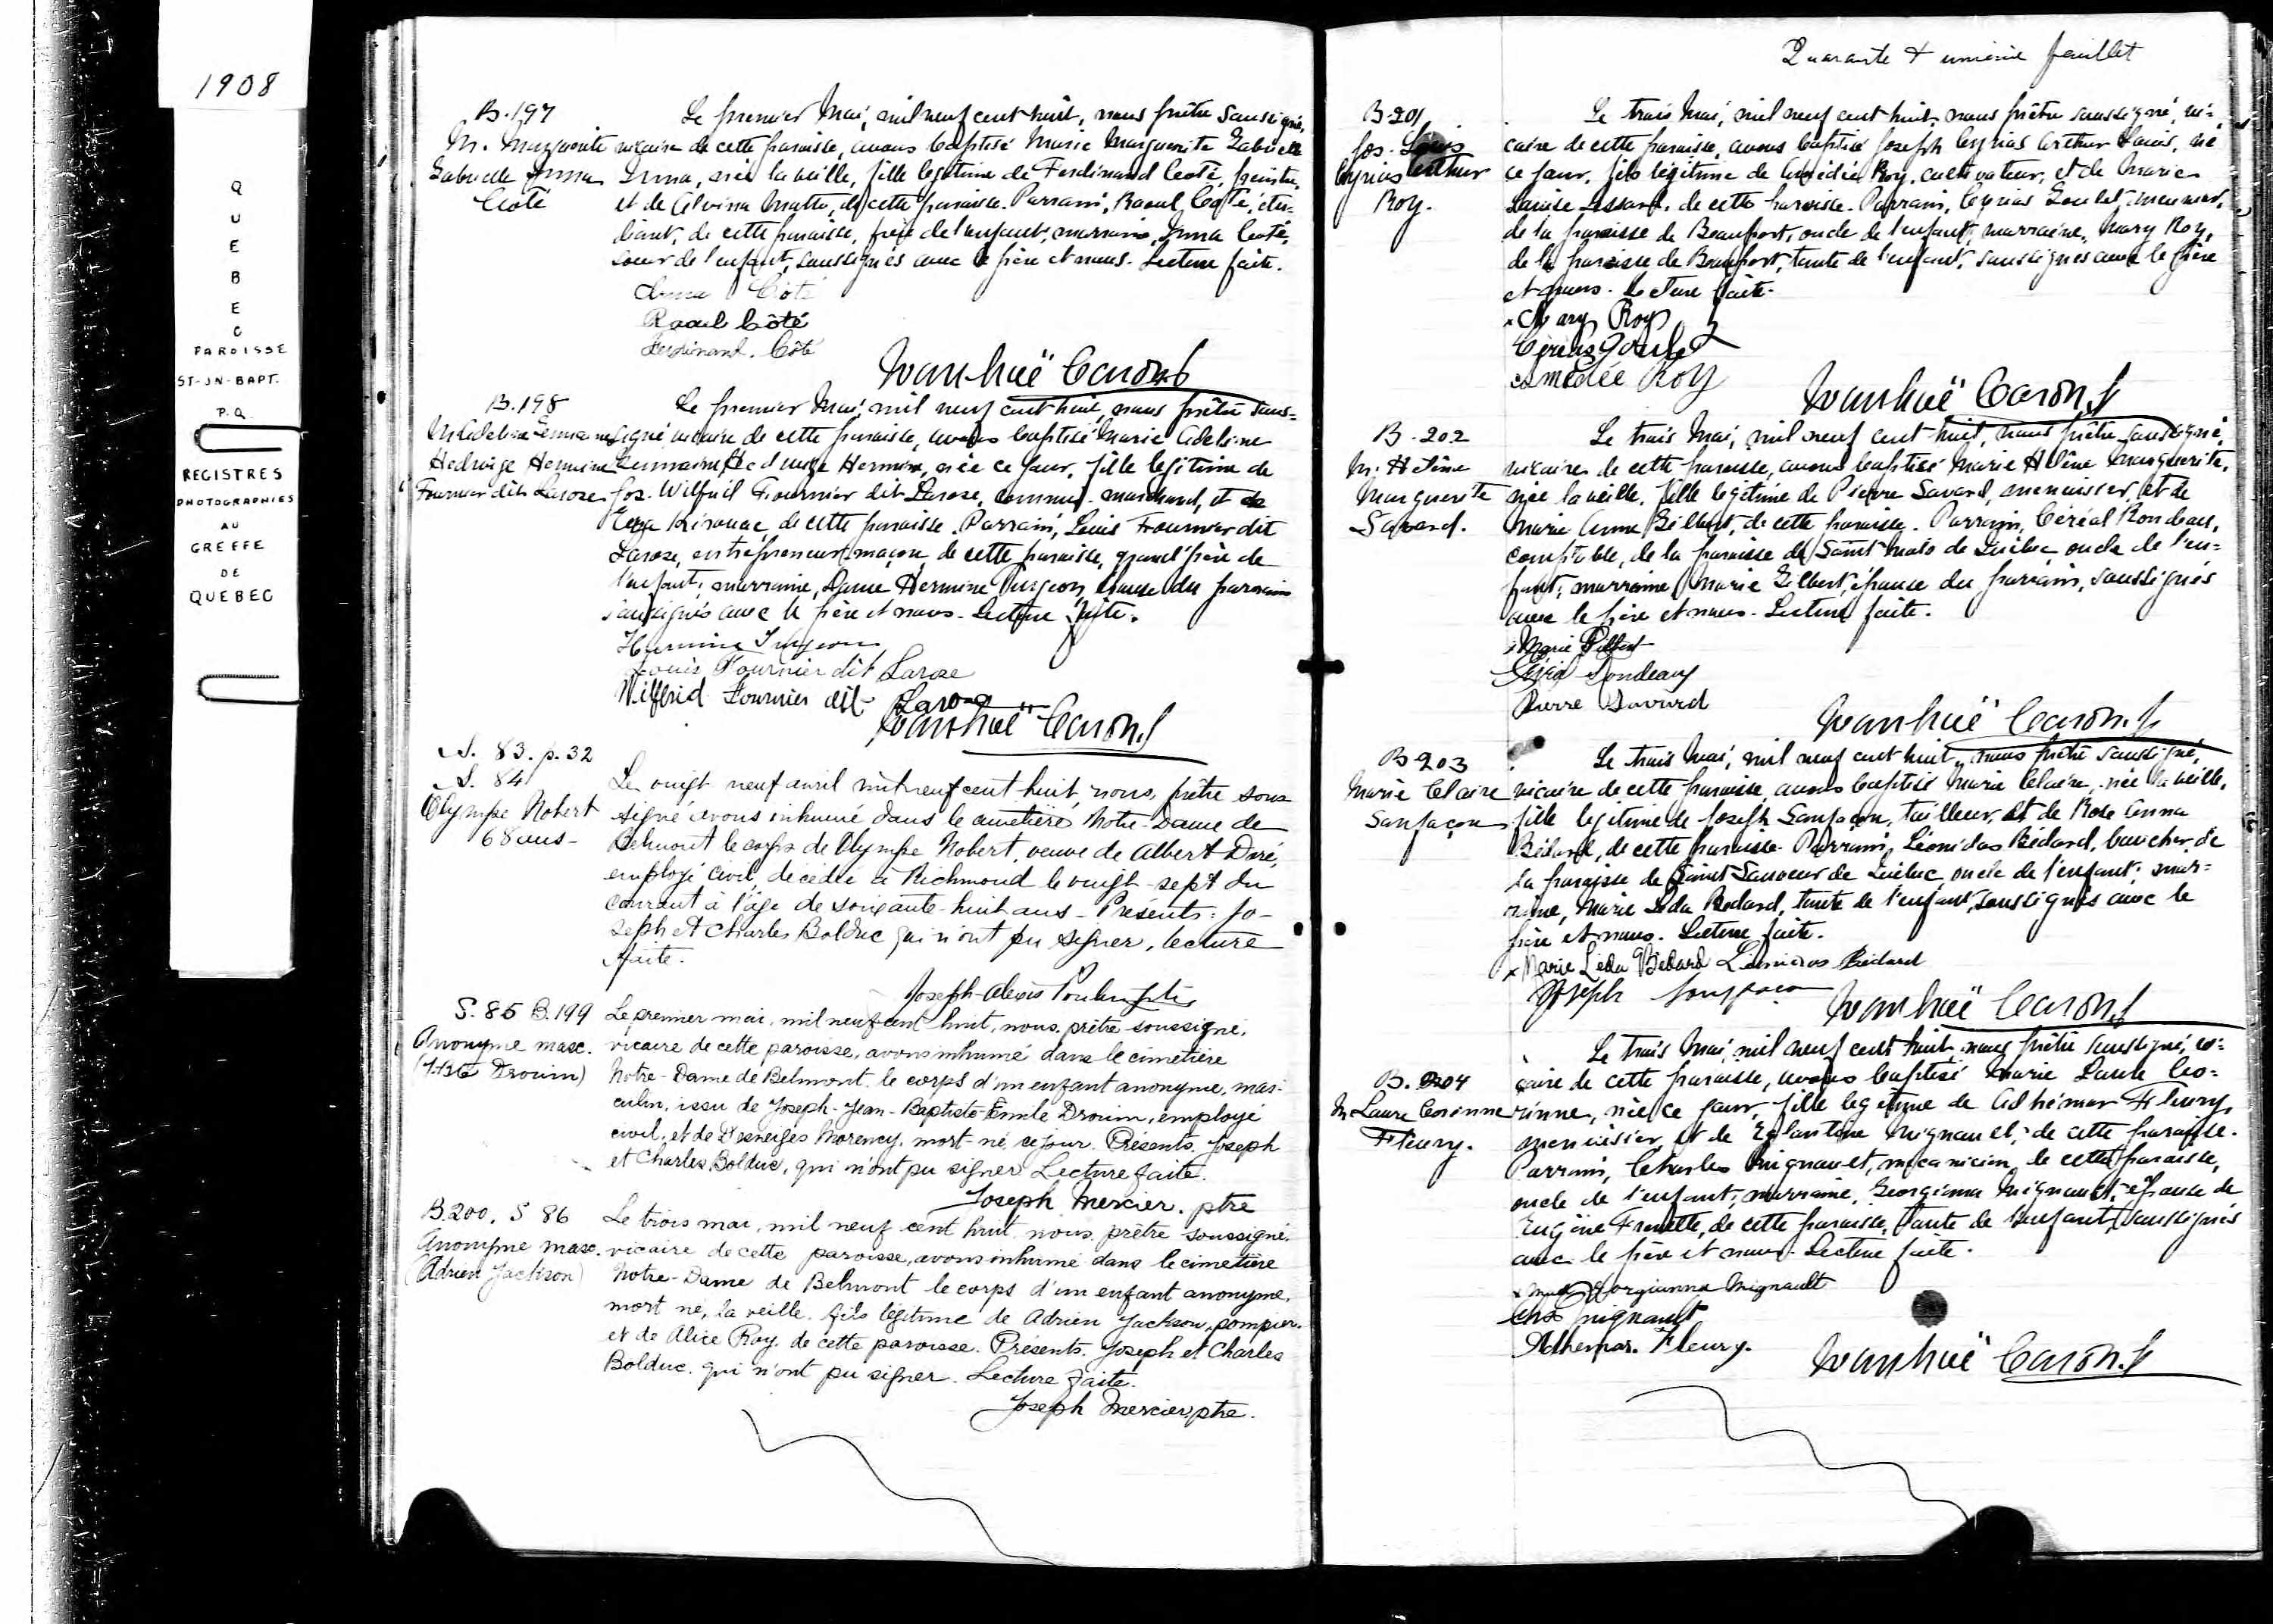 1908
QUEBEC
PAROISSE
ST-JN-BAPT.
P.Q.
REGISTRES
PHOTOGRAPHIES
AU
GREFFE
DE
QUEBEC
B.197
M. Marguerite
Gabrielle Irma
Côté
Le premier Mai, mil neuf cent huit, nous prêtre soussigné,
vicaire de cette paroisse, avons baptisé Marie Marguerite Gabrielle
Irma, née la veille, fille légitime de Ferdinand Côté, peintre,
et de Alvina Matte, de cette paroisse. Parrain, Raoul Côté, étu-
diant, de cette paroisse, frère de l'enfant, marraine, Irma Côté,
soeur de l'enfant, soussignés avec le père et nous. Lecture faite.
Irma Côté
Raoul Côté
Ferdinand. Côté
Ivanhoë Caron
B.198
M. Adeline Germaine
Hedwige Hermine
Fournier dit Larose
Le premier Mai, mil neuf cent huit, nous prêtre sous=
signé vicaire de cette paroisse, avons baptisé Marie Adeline
Germaine Hedwige Hermine, née ce jour, fille légitime de
Jos. Wilfrid Fournier dit Larose, commis-marchand, et de
Kirouac, de cette paroisse. Parrain, Louis Fournier dit
Larose, entrepreneur-maçon, de cette paroisse, grand'père de
l'enfant; marraine, Dame Hermine Turgeon, épouse du parrain
soussignés avec le père et nous. Lecture faite.
Hermine Turgeon
Louis Fournier dit Larose
Wilfrid Fournier dit Larose
Ivanhoë Caron
S. 83. p. 32
S. 84
Olympe Nobert
68 ans-
Le vingt neuf avril mil neuf cent huit, nous, prêtre sous
signé avons inhumé dans le cimetière Notre-Dame de
Belmont le corps de Olympe Nobert, veuve de Albert Doré,
employé civil, décédée à Richmond le vingt-sept du
courant à l'âge de soixante-huit ans- Présents: Jo-
seph et Charles Bolduc qui n'ont pu signer, lecture
faite.
Joseph-Alexis
S. 85 B. 199
Anonyme masc.
Drouin)
Le premier mai, mil neuf cent huit, nous, prêtre soussigné,
vicaire de cette paroisse, avons inhumé dans le cimetière
Notre-Dame de Belmont le corps d'un enfant anonyme, mas-
culin, issu de Joseph-Jean-Baptiste-Émile Drouin, employé
civil, et de Desneiges Morency, mort-né ce jour. Présents, Joseph
et Charles Bolduc, qui n'ont pu signer Lecture faite.
Joseph Mercier. ptre
B.200. S 86
Anonyme masc.
(Adrien Jackson)
Le trois mai, mil neuf cent huit, nous, prêtre soussigné,
vicaire de cette paroisse, avons inhumé dans le cimetière
Notre-Dame de Belmont le corps d'un enfant anonyme,
mort né, la veille, fils légitime de Adrien Jackson, pompier.
et de Alice Roy, de cette paroisse. Présents, Joseph et Charles
Bolduc, qui n'ont pu signer. Lecture faite.
Joseph Mercier, ptre.
Quarante & unième feuillet
B 201
Jos. Louis
Cyrias Arthur
Roy.
Le trois Mai, mil neuf cent huit, nous prêtre soussigné, vi=
caire de cette paroisse, avons baptisé Joseph Cyrias Arthur Louis, né
ce jour, fils légitime de Amédée Roy, cultivateur, et de Marie
Louise Lessard, de cette paroisse. Parrain, Cyrias Goulet, meunier,
de la paroisse de Beauport, oncle de l'enfant, marraine, Mary Roy,
de la paroisse de Beauport, tante de l'enfant, soussignés avec le père
et nous. Lecture faite.
Mary Roy
Goulet
Amédée Roy
Ivanhoë Caron
B. 202
M. Hélène
Marguerite
Savard.
Le trois Mai, mil neuf cent huit, nous prêtre soussigné,
vicaire de cette paroisse, avons baptisé Marie Hélène Marguerite,
née la veille, fille légitime de Pierre Savard, menuisier, et de
Marie Anna Gilbert, de cette paroisse. Parrain, Céréal Rondeau,
comptable, de la paroisse de Saint Malo de Québec oncle de l'en=
fant, marraine Marie Gilbert, épouse du parrain, soussignés
avec le père et nous. Lecture faite.
Marie Gilbert
Rondeau
Pierre Savard
Ivanhoë Caron
B 203
Marie Claire
Sanfaçon
Le trois Mai, mil neuf cent huit, nous prêtre soussigné,
vicaire de cette paroisse, avons baptisé Marie Claire, née la veille,
fille légitime de Joseph Sanfaçon, tailleur, et de Rose Anna
Bédard, de cette paroisse. Parrain, Léonidas Bédard, boucher, de
la paroisse de Saint Sauveur de Québec oncle de l'enfant; mar=
raine, Marie Léda Bedard, tante de l'enfant, soussignés avec le
père et nous. Lecture faite.
Marie Léda Bédard Léonidas Bédard
Joseph Sanfaçon
Ivanhoë Caron
B. 204
M. Laure Corinne
Fleury.
Le trois Mai, mil neuf cent huit, nous prêtre soussigné, vi=
caire de cette paroisse, avons baptisé Marie Laure Co=
rinne, née ce jour, fille légitime de Adhémar Fleury,
menuisier, et de Eglantine Mignault, de cette paroisse.
Parrain, Charles Mignault, mécanicien, de cette paroisse,
oncle de l'enfant; marraine, Georgianna Mignault, épouse de
Eugène Frenette, de cette paroisse, tante de l'enfant, soussignés
avec le père et nous. Lecture faite.
Georgianna Mignault
Chs Mignault
Adhemar. Fleury.
Ivanhoë Caron